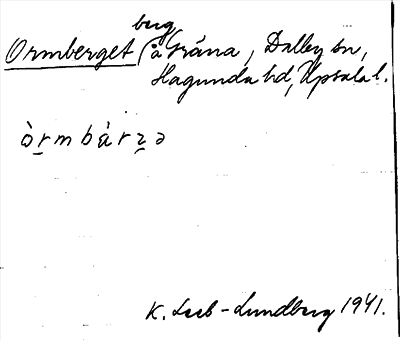 berg
Ormberget (å Gråna, Dalby sn,
Hagunda hd, Upsala l.
òr̲mbár̲ʒə
K. Leeb-Lundberg 1941.